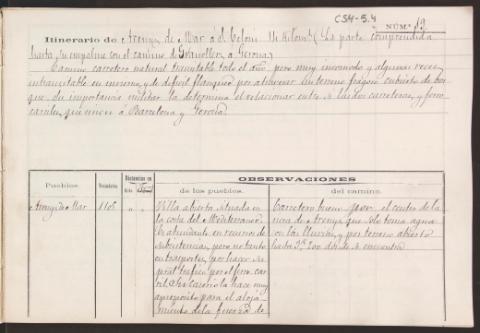 CSH-5.4
NÚM.º 19
Itinerario de Arenys de Mar á S. Celoni 14 Kilom.s (La parte comprendida
hasta su empalme con el camino de Granollers á Gerona)
Camino carretero natural transitable todo el año, pero muy incomodo y algunas veces
intransitable en invierno y de dificil flanqueo por atravesar un terreno fragoso cubierto de bos
que. Su importancia militar la determina el relacionar entre si las dos carreteras, y ferro
carriles que unen á Barcelona y Gerona.
Pueblos.
Vecindario.
Distancias en
OBSERVACIONES
de los pueblos.
del camino.
Arenys de Mar
1108
" "
Villa abierta situada en
la costa del Mediterraneo.
Es abundante en recursos de
subsistencias, pero no tanto
en trasportes, por hacer su
pral trafico por el ferro car
ril. Su caserio la hace muy
aproposito para el aloja
miento de la fuerza de
Carretero bueno por el centro de la
riera de Arenys que solo toma agua
en las lluvias, y por terreno abierto
hasta 3K.200 donde se encuentra